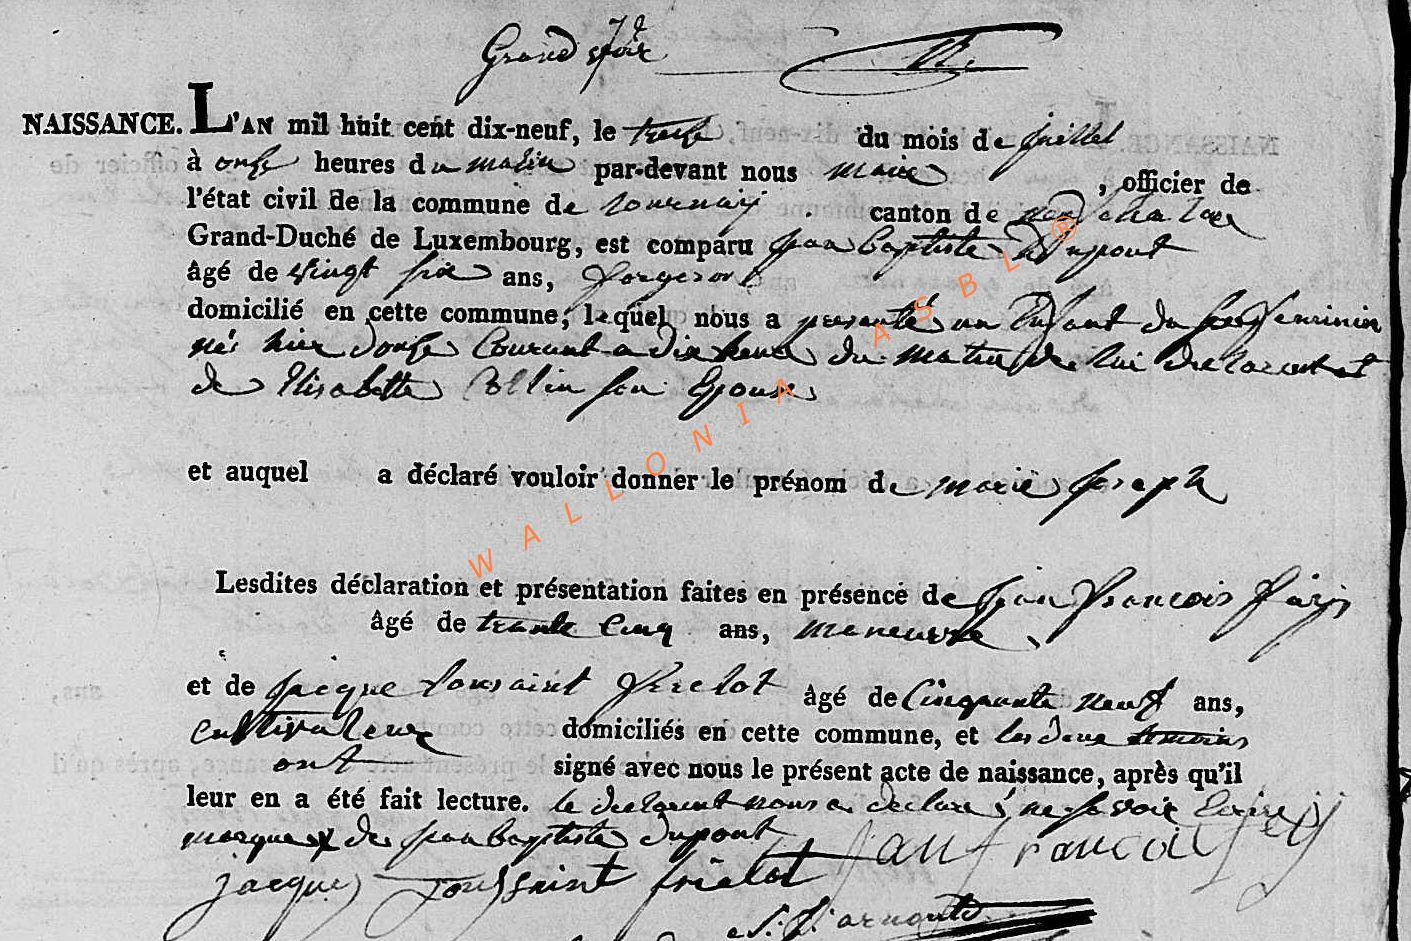 NAISSANCE. L'AN mil huit cent dix-neuf, le treize du mois de juillet
à onze heures du matin par-devant nous maire , officier de
l'état civil de la commune de tournay canton de neufchateau
Grand-Duché de Luxembourg, est comparu jean baptiste Dupont
âgé de vingt six ans, forgeron
domicilié en cette commune, lequel nous a presenté un Enfant du sexe feminin
né hier douze Courant a dix heure du matin de lui declarant et
de Elisabette Collin son Epouse
et auquel a déclaré vouloir donner le prénom de marie joseph
Lesdites déclaration et présentation faites en présence de jean francois
âgé de trente cinq ans, maneuvre
et de jacque toussaint âgé de Cinquante neuf ans,
cultivateur domiciliés en cette commune, et les deux temoins
ont signé avec nous le présent acte de naissance, après qu'il
leur en a été fait lecture. le declarant nous a declaré ne savoir Ecrire
marque x de jean baptiste dupont
jan francoi
jacque toussaint
WALLONIA ASBL ®